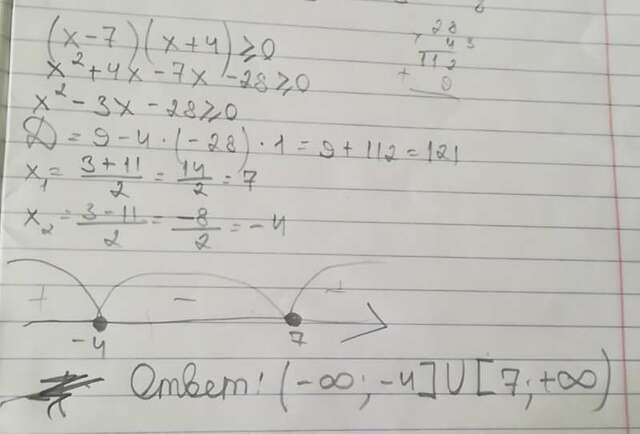 (x-7)(x+4)⩾0
x²+4x-7x-28⩾0
x²-3x-28⩾0
D=9-4·(-28)·1=9+112=121
x₁=3+11/2=14/2=7
x₂=3-11/2=-8/2=-4
28
4
112
+ 9
+ - +
-4 7
Ответ: (-∞; -4]∪[7; +∞)